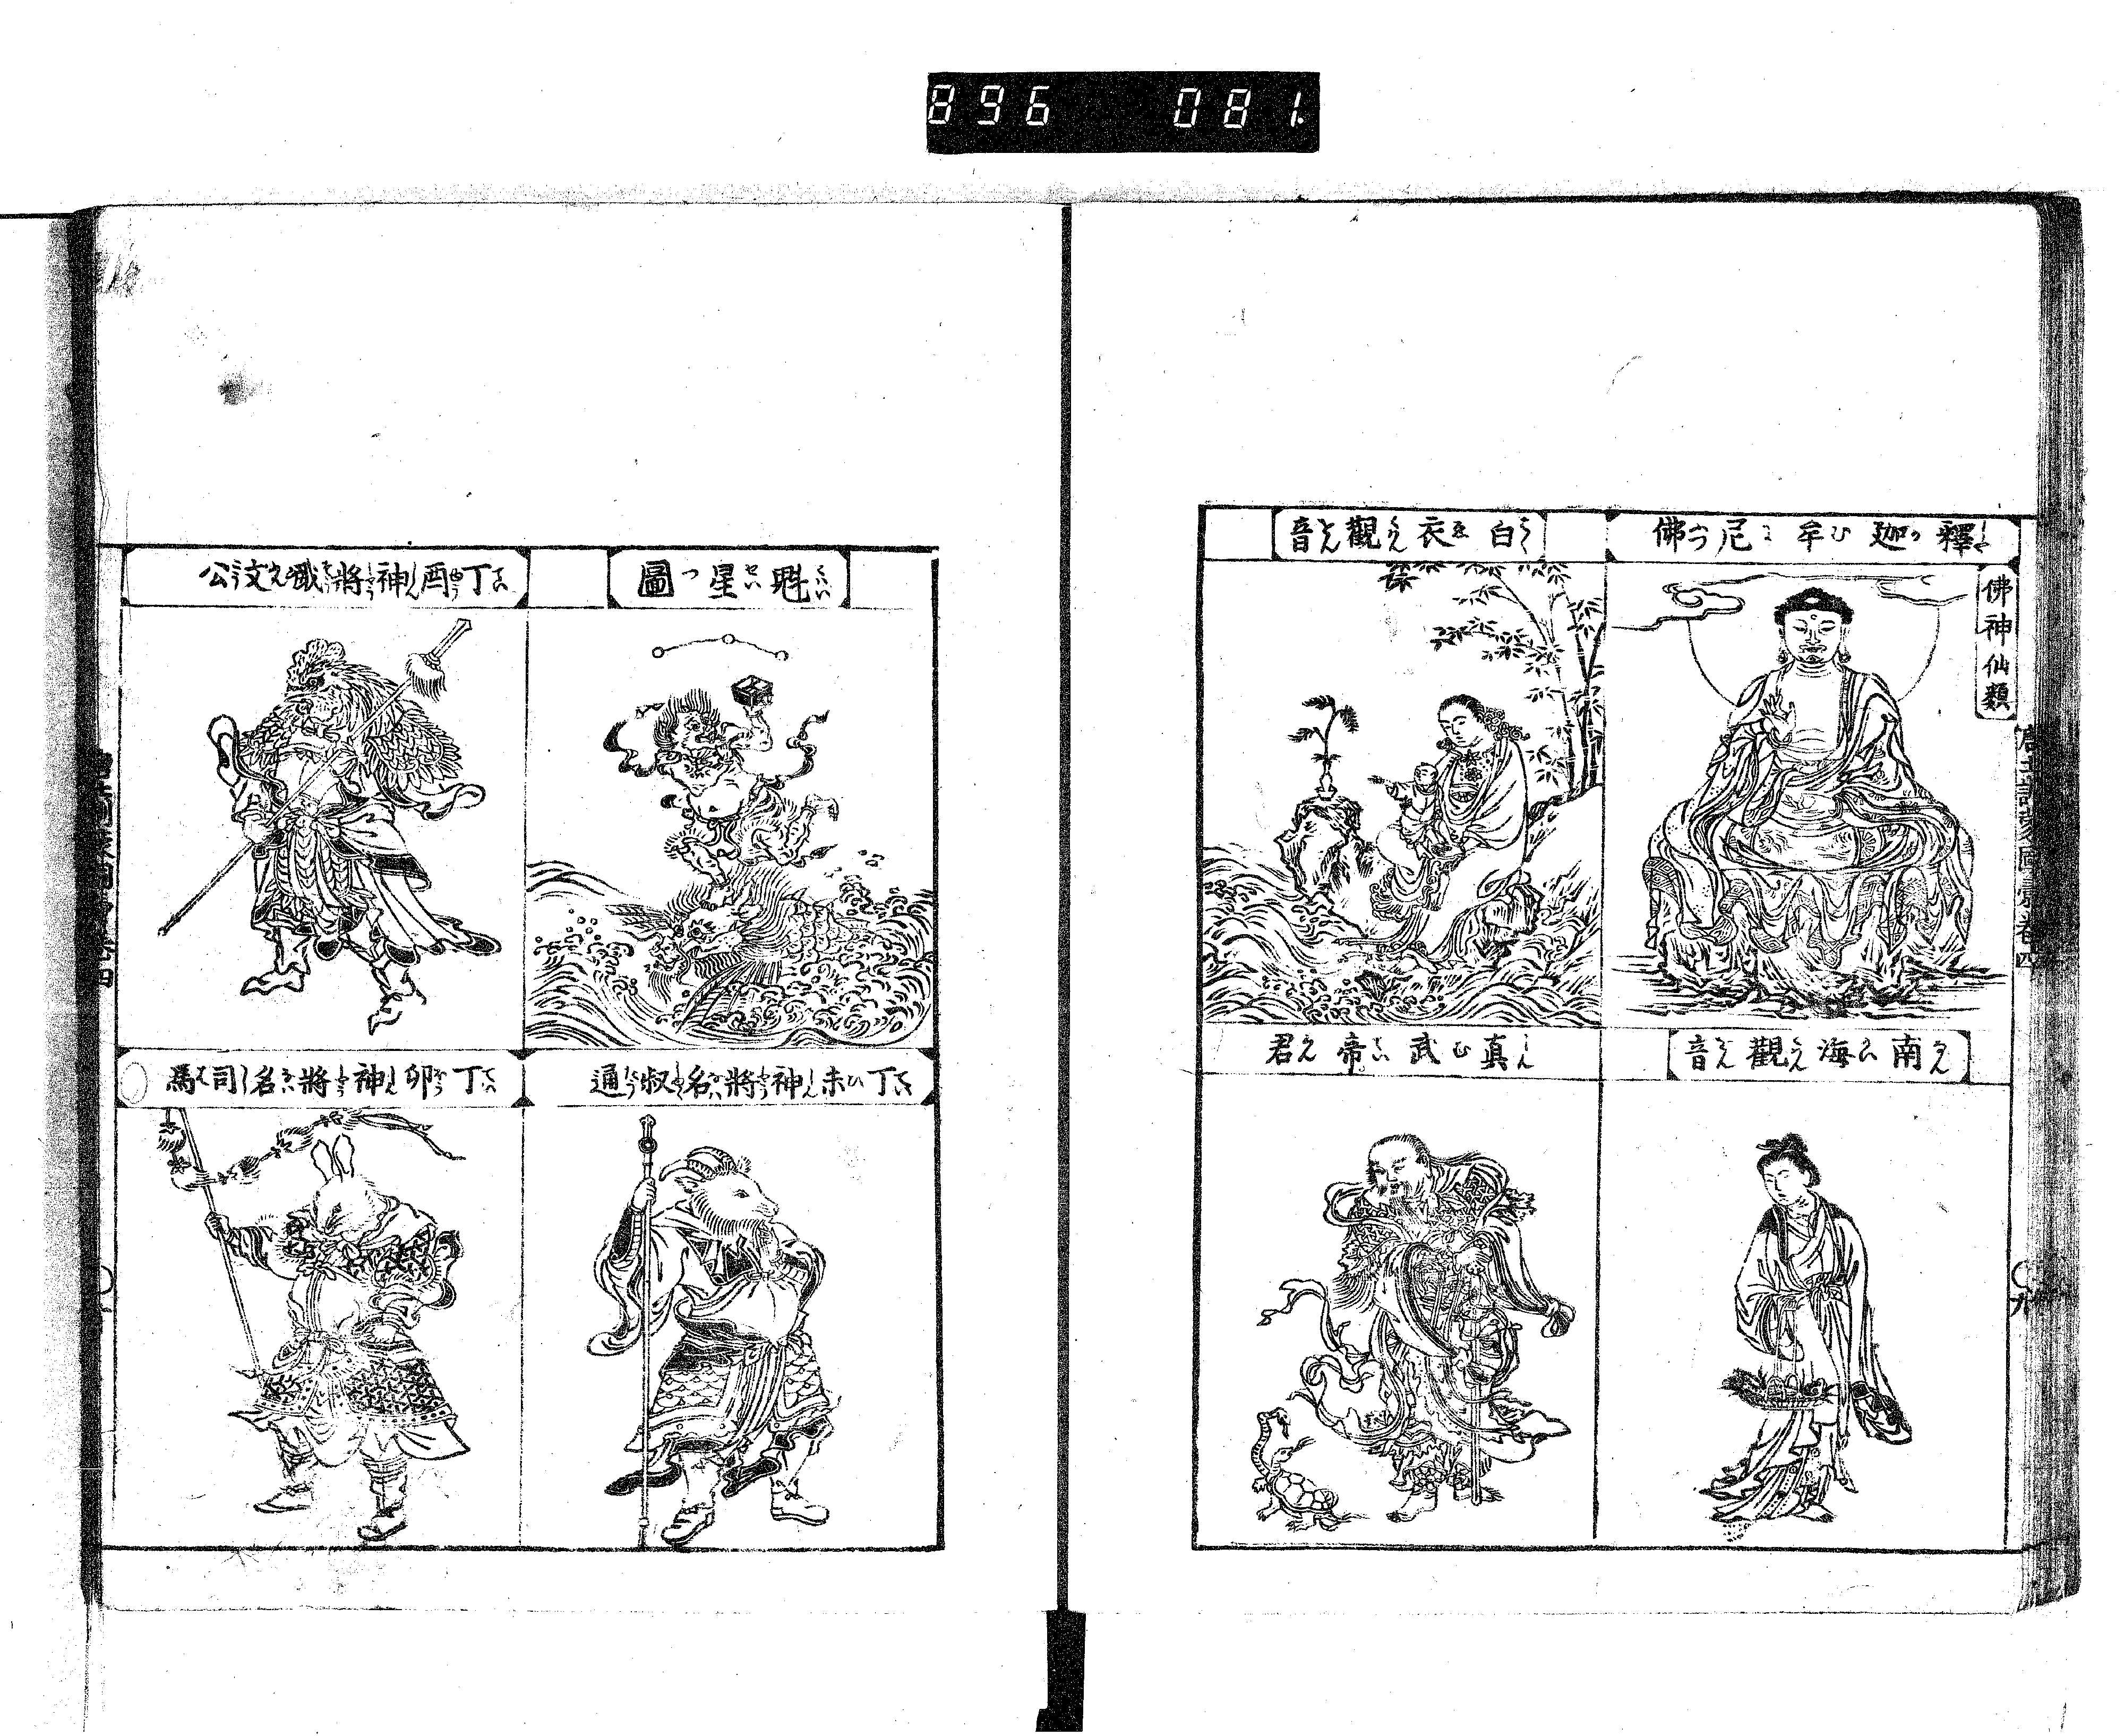 896 081
釋迦牟尼佛
佛神仙類
白衣觀音
南海觀音
真武帝君
唐土訓蒙圖彙卷四
九
魁星圖
丁酉神將臧文公
丁未神將名叔通
丁卯神將名司馬